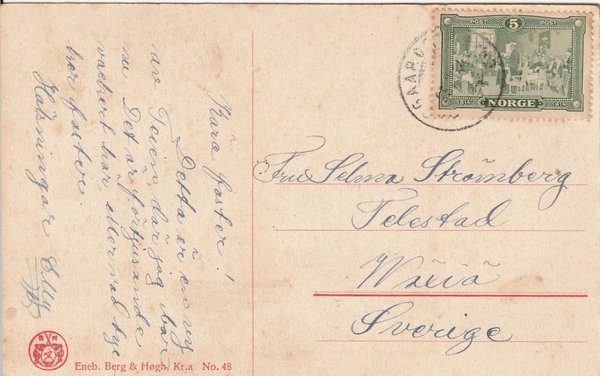 Kära faster!
Detta är en vy
av Teien, där jag bor
nu. Det är förtjusande
vackert här
hor faster.
Hälsningar Elly
POST 5 POST
1814 NORGE 1914
GAARD
Fru Selma Strömberg
Telestad
Wäxiö
Sverige
Eneb. Berg & Høgh, Kr.a No. 48